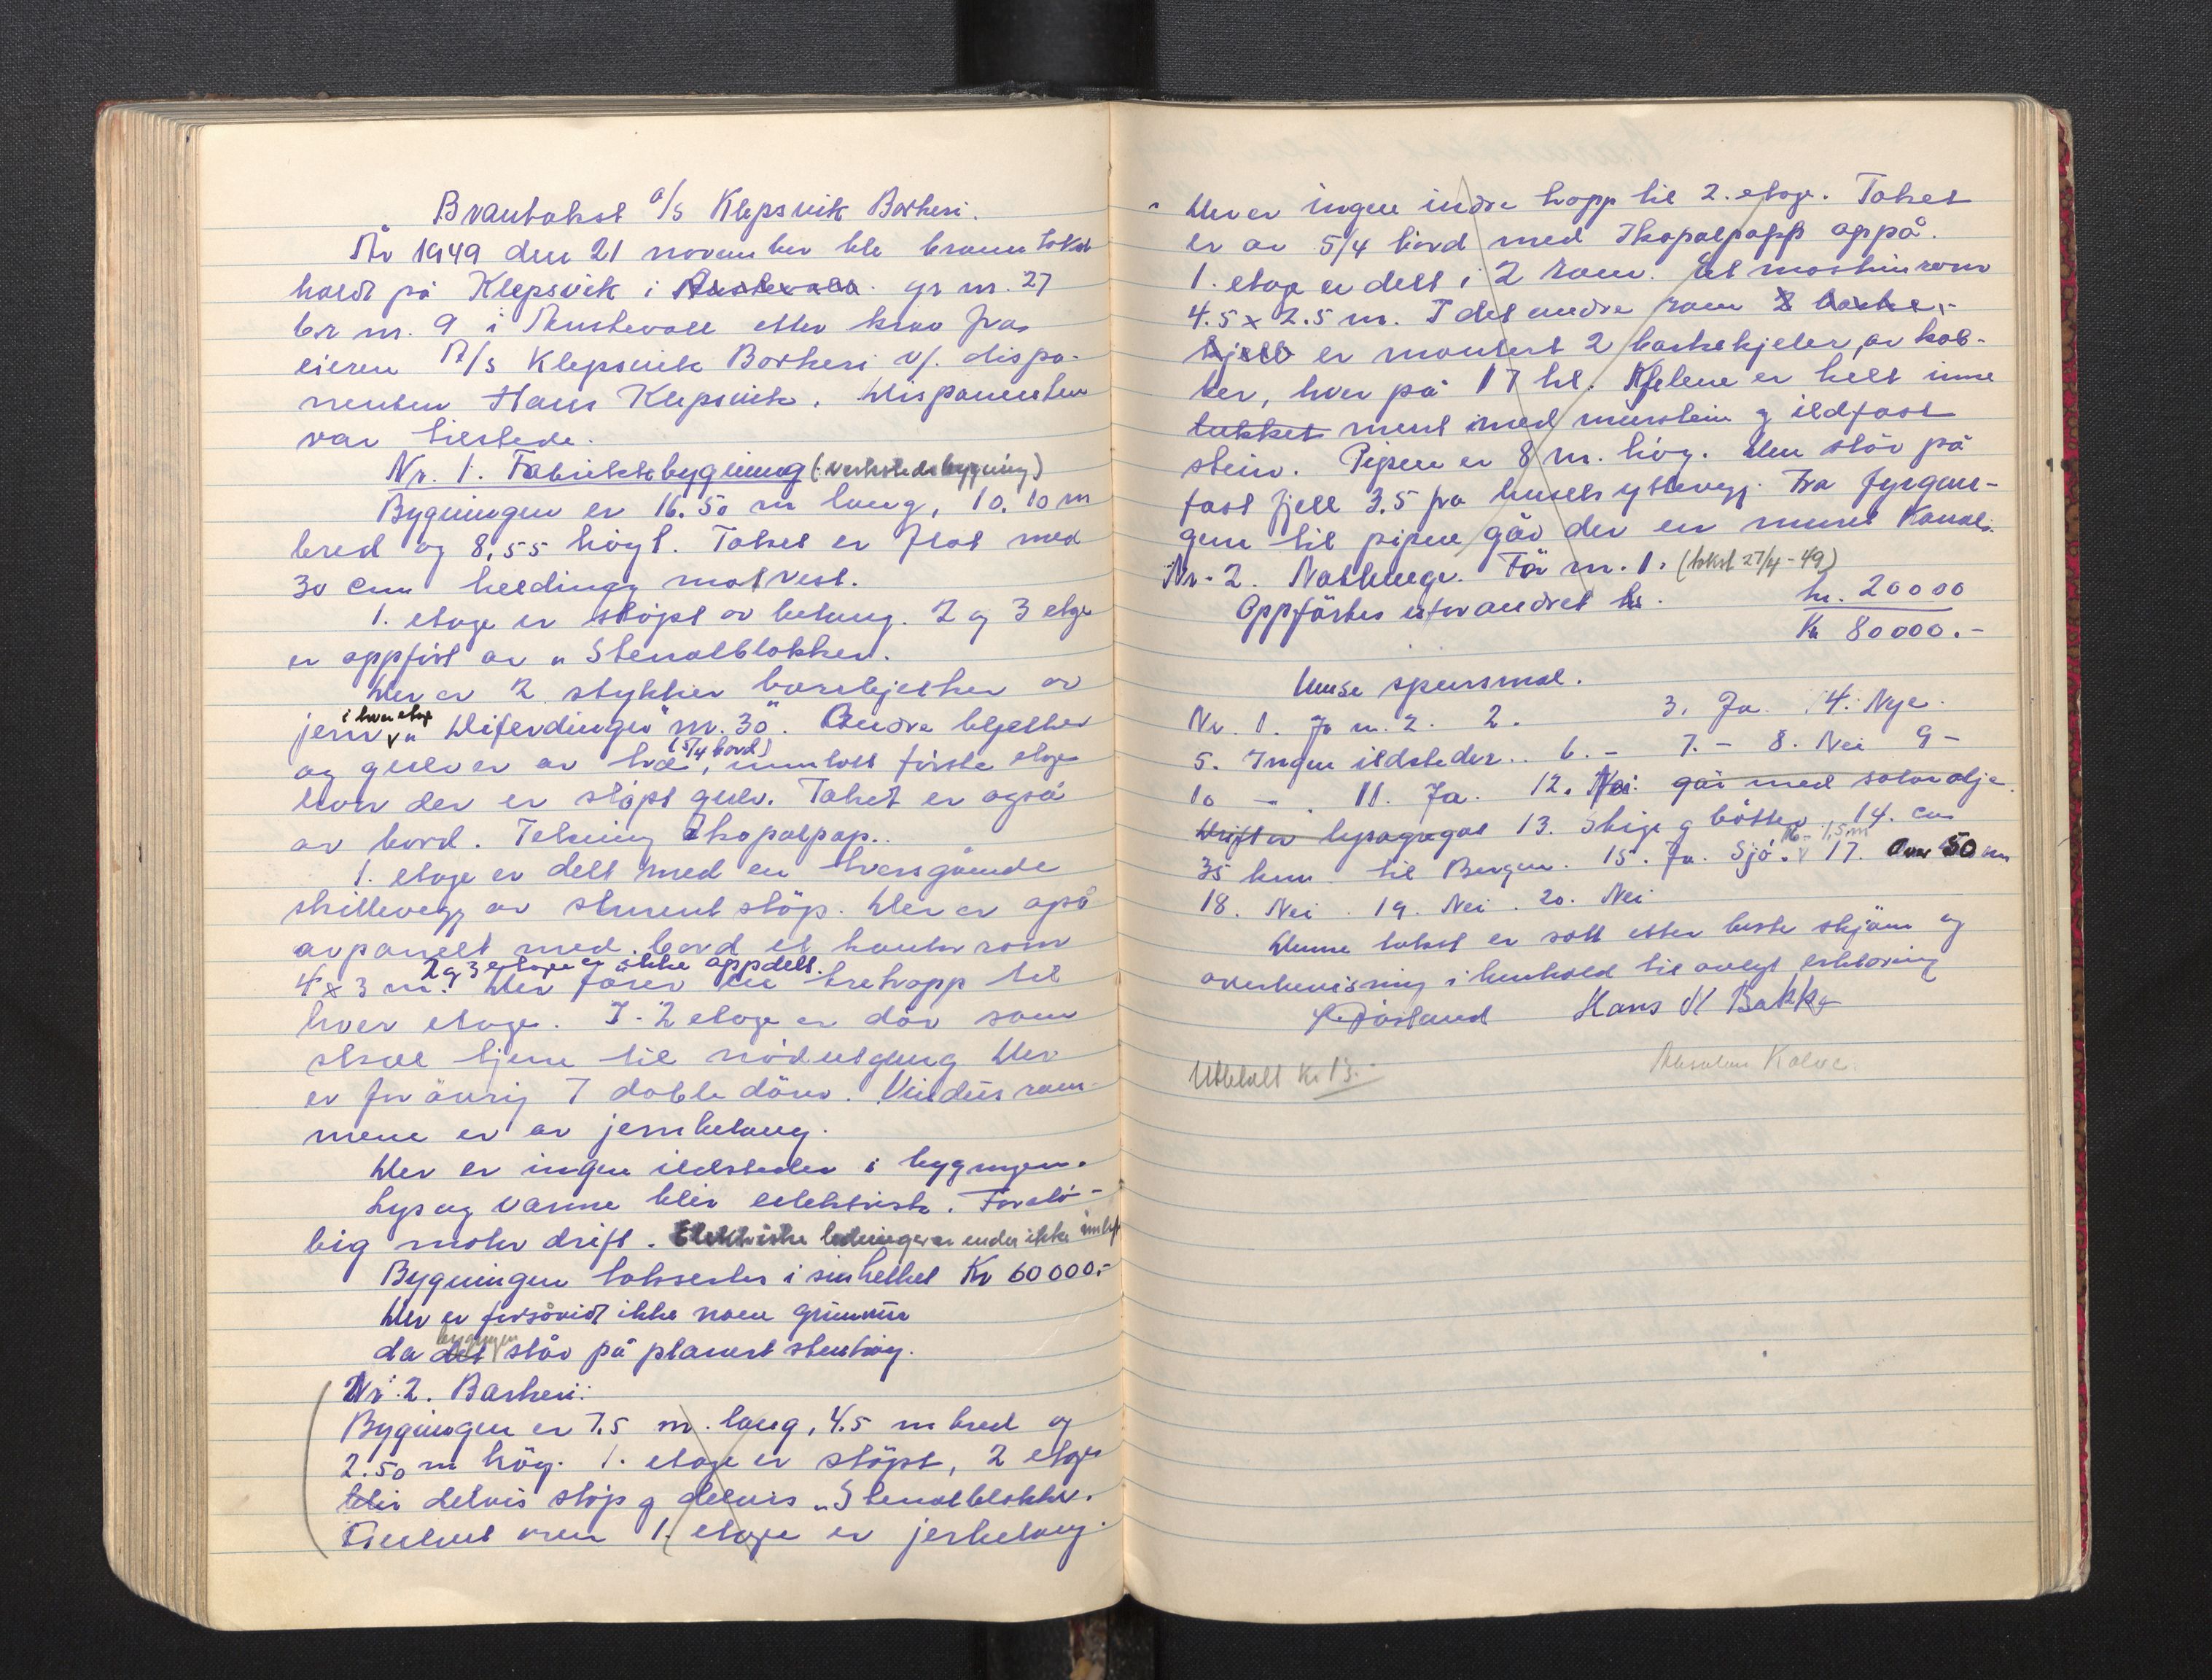 Branntakst a/s Klepsvik Barkeri.
År 1949 den 21 november ble branntakst
holdt på Klepsvik i Austevoll gr nr. 27
br nr. 9 i Austevoll etter krav fra
eieren A/s Klepsvik Barkeri v/. dispo-
nenten Hans Klepsvik. Disponenten
var tilstede.
Nr. 1. Fabrikkbygning (: verkstedsbygning)
Bygningen er 16.50 m lang, 10.10 m
bred og 8,55 høgt. Taket er flat med
30 cm helding mot vest.
1. etage er støpt av betong. 2 og 3 etage
er oppført av "Stenolblokker.
Der er 2 stykker bærebjelker av
jern i hver etage "Diferdinger" nr. 30". Andre bjelker
og gulv er av tre (5/4 bord), unntatt første etage
hvor der er støpt gulv. Taket er også
av bord. Tekning Ikopalpap..
1. etage er delt med en tversgående
skillevegg av sement støp. Der er også
avpanelt med bord et kontor rom
4 x 3 m. 2 og 3 etage er ikke oppdelt. Der fører en tretrapp til
hver etage. I 2 etage er dör som
skal tjene til nödutgang Der
er for övrig 7 doble dörer. Vindus ram-
mene er av jernbetong.
Der er ingen ildsteder i bygningen.
Lys og varme blir elektrisk. Forelö-
big motor drift. Elektriske ledninger er enda ikke innlagt
Bygningen takseres i sin helhet Kr 60000.-
Der er forsåvidt ikke noen grunnmur
da det bygningen står på planert stenting.
Nr. 2. Barkeri:
Bygningen er 7,5 m. lang, 4.5 m bred og
2.50 m høg. 1. etage er støpt, 2 etage
blir delvis støp og delvis "Stenolblokker.
over 1. etage er jerbetong.
Der er ingen indre trapp til 2. etage. Taket
er av 5/4 bord med Ikopalpapp oppå.
1. etage er delt i 2 rom. Et maskinrom
4.5 x 2.5 m. I det andre rom 2 barke-
kjell er montert 2 barkekjeler, av kob-
ber, hver på 17 hl. Kjelene er helt inne
lukket murt med murstein og ildfast
stein. Pipen er 8 m. høg. Den står på
fast fjell 3,5 fra husets yttervegg. Fra fyrgan-
gene til pipen går der en muret Kanal.
Nr. 2. Notheng. Før nr. 1. (takst 27/4-49)
Oppføres uforandret kr. kr. 20000
Kr 80000.-
Disse spørsmål.
Nr. 1. Jo nr. 2. 2. 3. Ja. 4. Nye.
5. Ingen ildsteder.. 6. - 7. - 8. Nei 9 -
10 -. 11. Ja. 12. Nei går med solarolje.
Driften lysagregat 13. Stige og bøtter 14. ca
35 km. til Bergen. 15. Ja. Sjö. 16 - 1,5 m 17. Over 50 m
18. Nei. 19. Nei. 20. Nei
Denne takst er satt etter beste skjønn og
overbevisning i henhold til avlagt erklæring
Hans H Bakke
Utbetalt Kr 13.- Absalon Kalve.